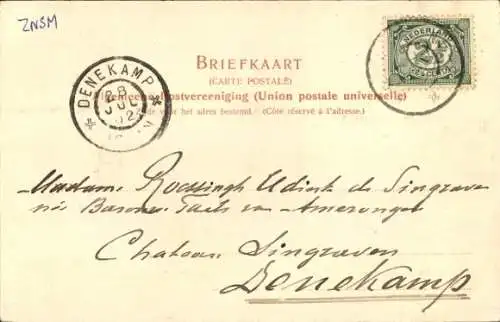 ZNSM
NEDERLAND
2½
DENEKAMP
28
JUL
02
BRIEFKAART
(CARTE POSTALE)
Algemeene Postvereeniging (Union postale universelle)
Zijde voor het adres bestemd. – (Côté réservé à l'adresse.)
Madame Roessingh Udink de Singraven
née Baronne Taets van Amerongen
Chateau Singraven
Denekamp